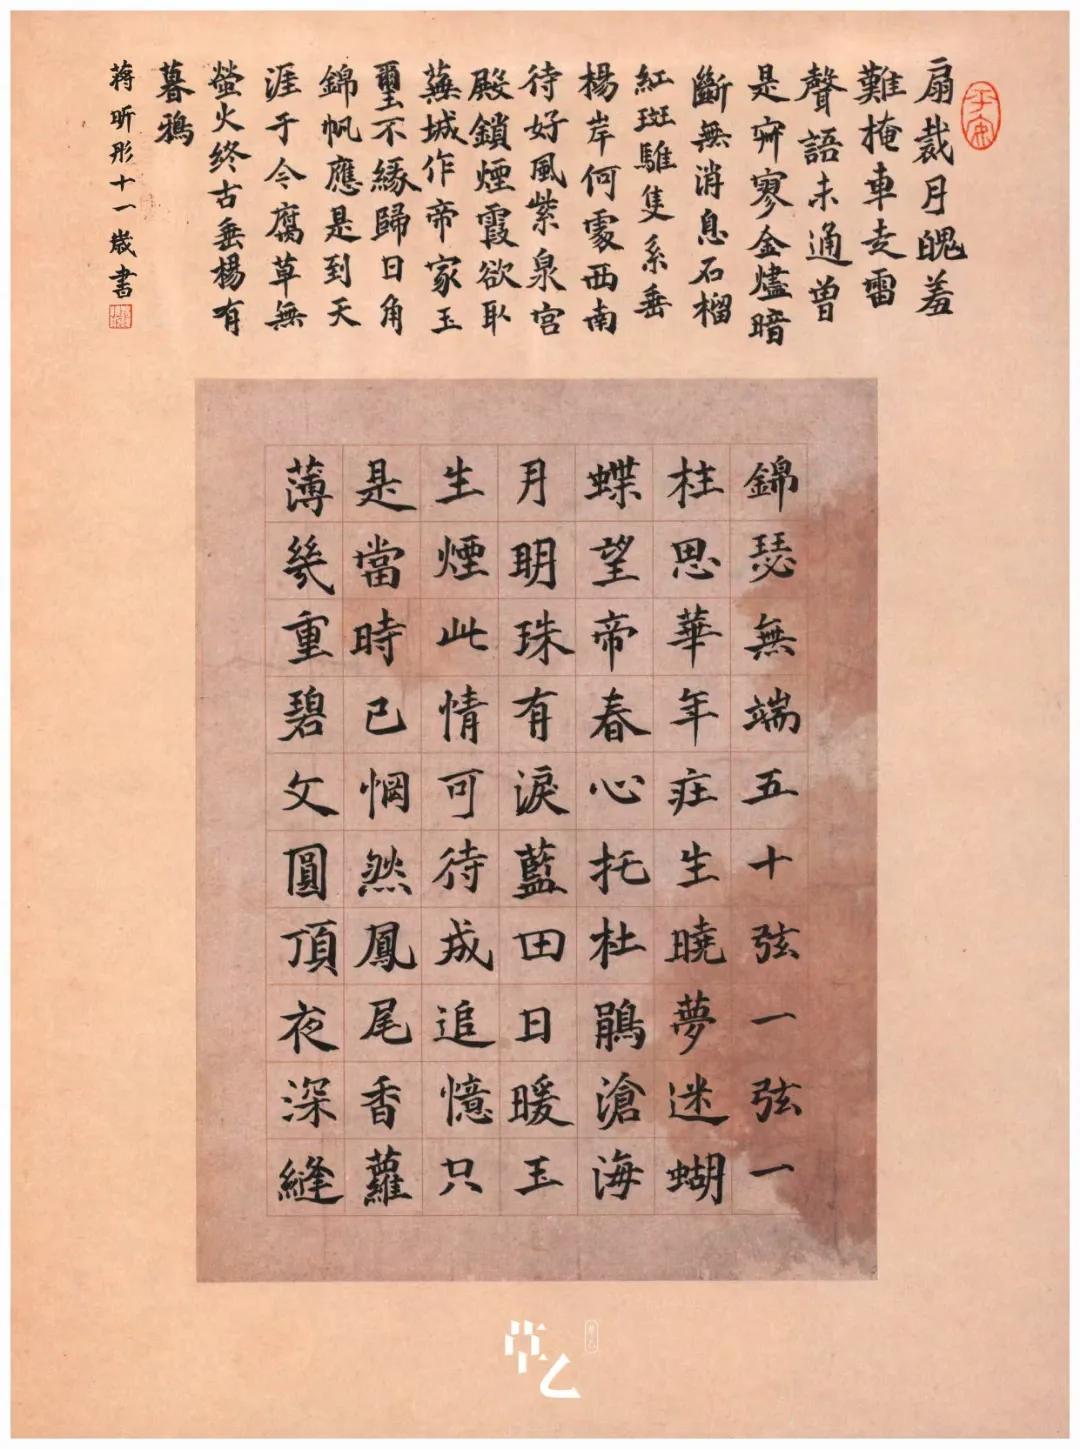 錦瑟無端五十弦一弦一
柱思華年庄生曉夢迷蝴
蝶望帝春心托杜鵑滄海
月明珠有淚藍田日暖玉
生煙此情可待成追憶只
是當時已惘然鳳尾香蘿
薄幾重碧文圓頂夜深縫
平安
扇裁月魄羞
難掩車走雷
聲語未通曾
是寂寥金燼暗
斷無消息石榴
紅斑騅隻系垂
楊岸何處西南
待好風紫泉宮
殿鎖煙霞欲取
蕪城作帝家玉
璽不緣歸日角
錦帆應是到天
涯于今腐草無
螢火終古垂楊有
暮鴉
蔣昕彤十一歲書
草乙